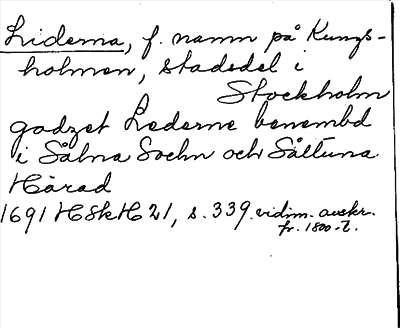 Liderna, f. namn på Kungs-
holmen, stadsdel i
Stockholm
godzet Lederne benembd
i Sålna Sochn och Såltuna
Härad
1691 HSkH21, s. 339. vidim. avskr.
fr. 1800-t.